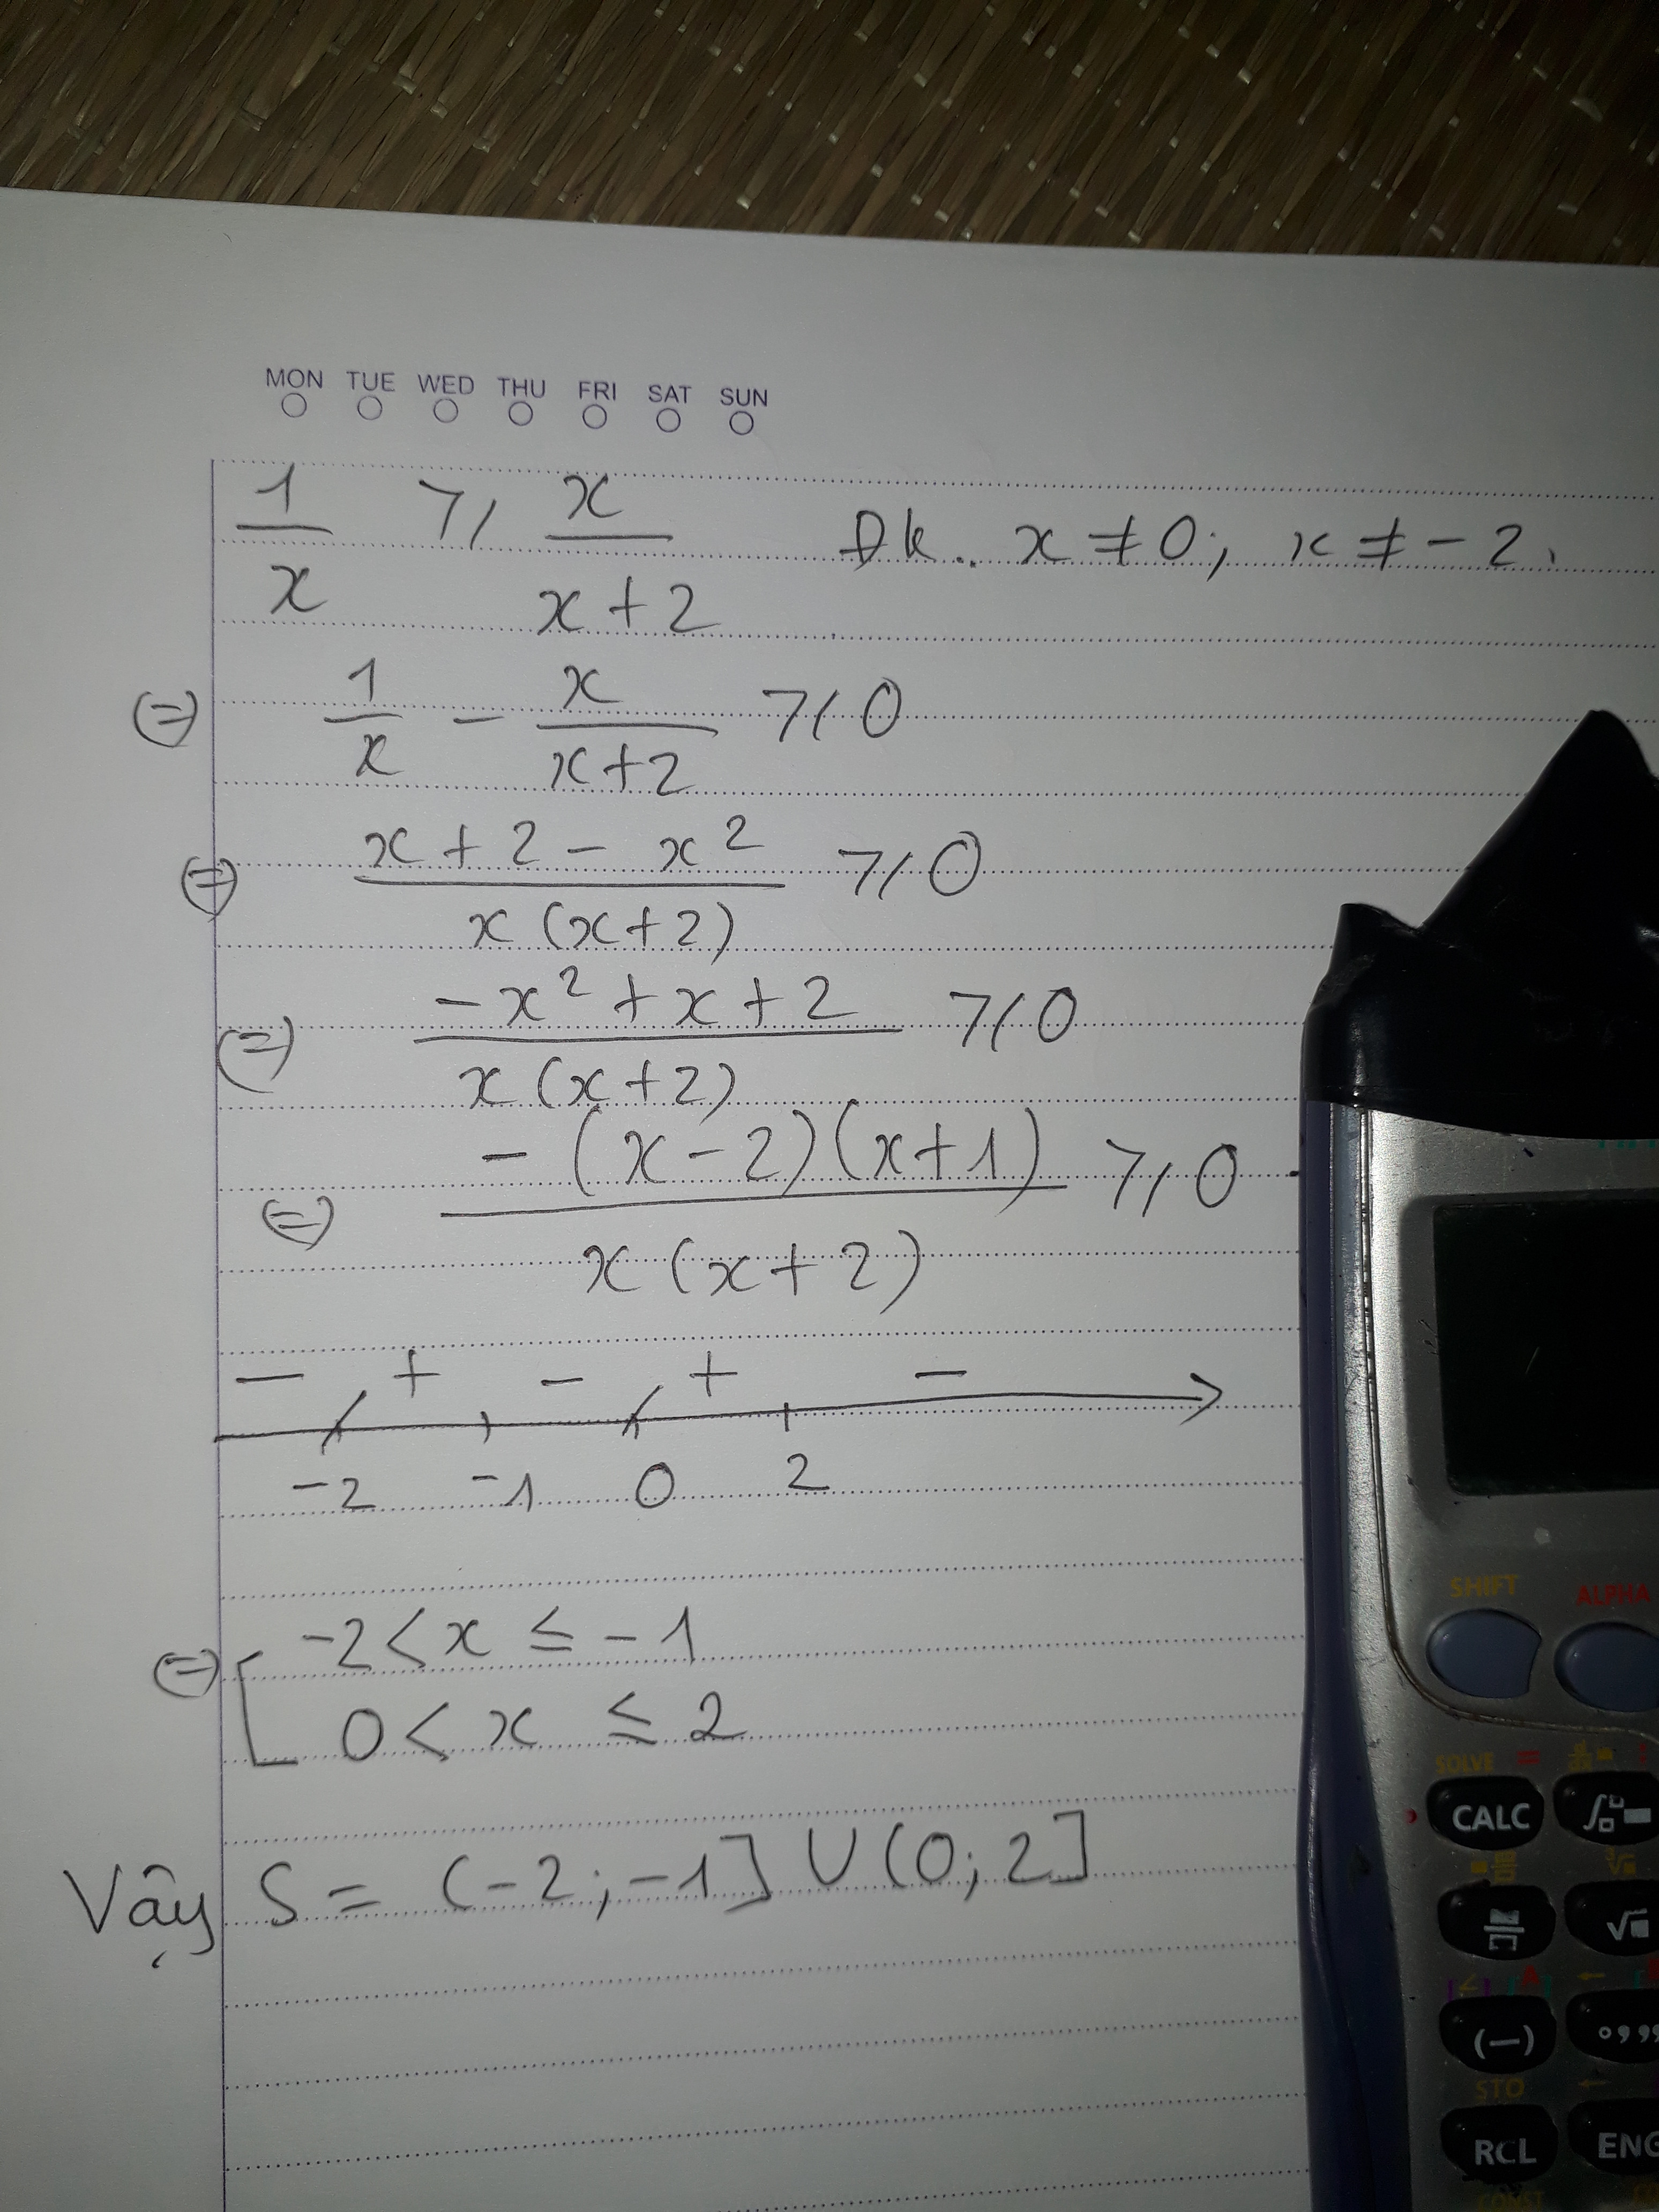 MON TUE WED THU FRI SAT SUN
1/x ≥ x/(x+2) Đk: x ≠ 0; x ≠ -2.
(=) 1/x - x/(x+2) ≥ 0
(=) (x + 2 - x²)/(x(x+2)) ≥ 0
(=) (-x² + x + 2)/(x(x+2)) ≥ 0
(=) (-(x-2)(x+1))/(x(x+2)) ≥ 0
- + - + -
-2 -1 0 2
(=) [ -2 < x ≤ -1
0 < x ≤ 2
Vậy S = (-2; -1] U (0; 2]
SHIFT ALPHA
SOLVE =
CALC
√
(—)
STO
RCL ENG